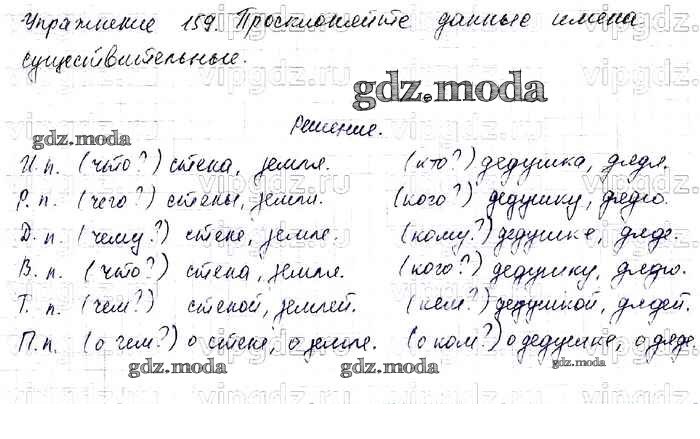 Упражнение 159. Просклоняйте данные имена
существительные.
gdz.moda
Решение.
gdz.moda
И. п. (что?) стена, земля. (кто?) дедушка, дядя.
Р. п. (чего?) стены, земли. (кого?) дедушку, дядю.
Д. п. (чему?) стене, земле. (кому?) дедушке, дяде.
В. п. (что?) стена, земля. (кого?) дедушку, дядю.
Т. п. (чем?) стеной, землей. (кем?) дедушкой, дядей.
П. п. (о чем?) о стене, о земле. (о ком?) о дедушке, о дяде.
gdz.moda gdz.moda gdz.moda
vipgdz.ru